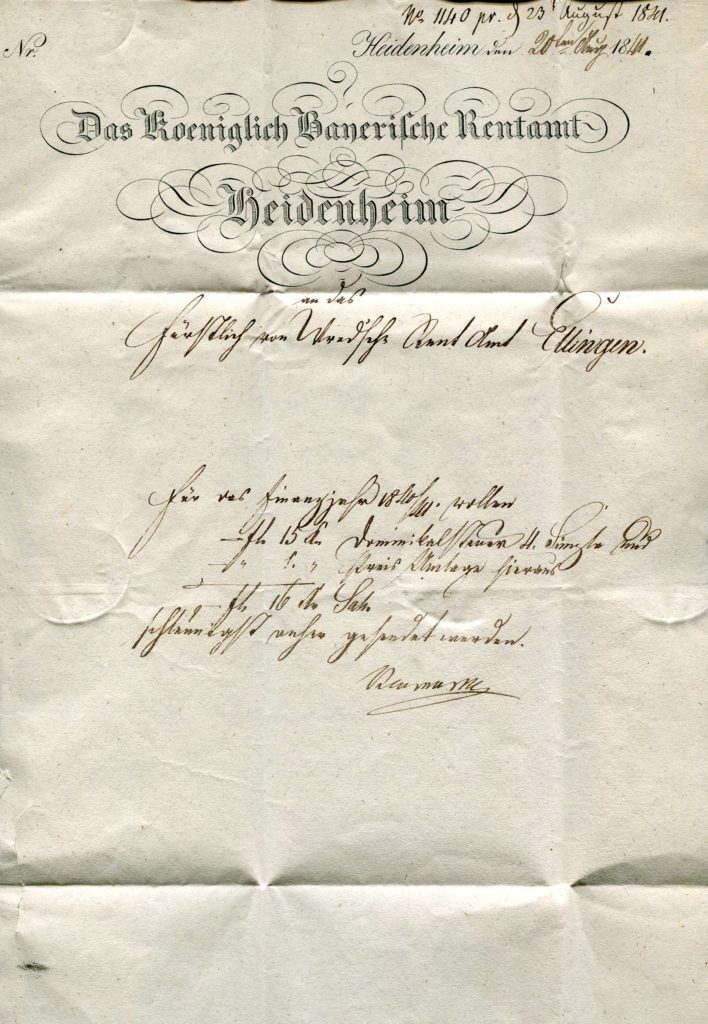 No. 1140 pr. d 23t August 1841.
Nr.
Heidenheim den 20ten Aug 1841.
Das Koeniglich Bayerische Rentamt
Heidenheim
an das
Fürstlich von Wredsche Rent Amt Ellingen.
Für das Finanzjahr 1840/41. wollen
— fl. 15 Kr. Dominikalsteuer 4. Simpla und
— " 1. " Kreis Umlage hieraus
— fl. 16 Kr
schleunigst anher gesendet werden.